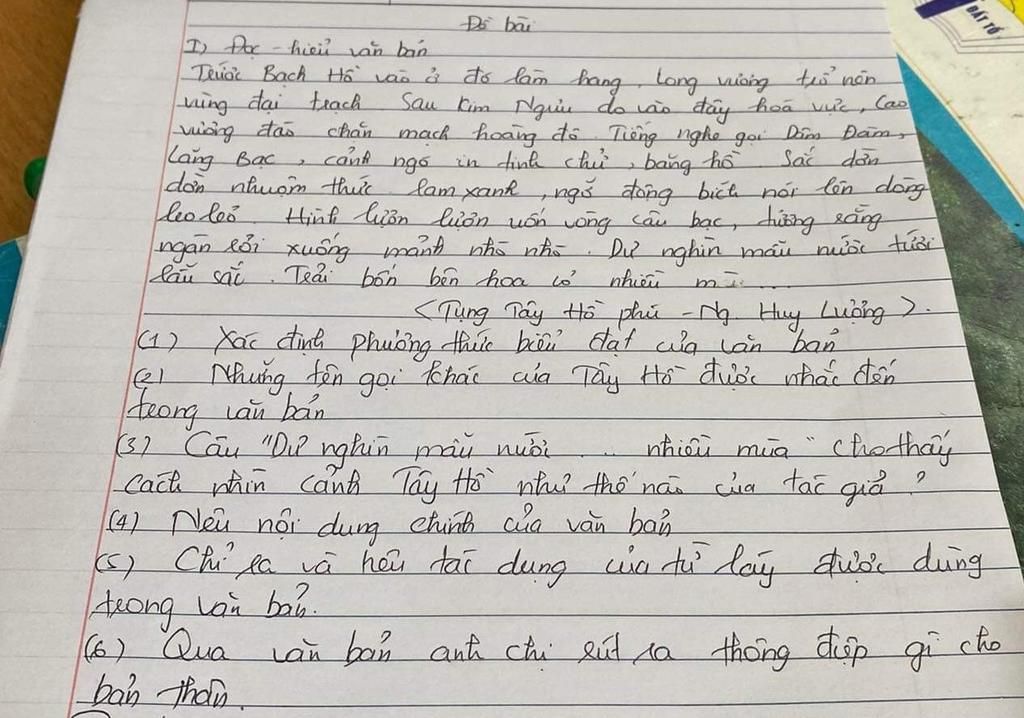 Đề bài
I) Đọc - hiểu văn bản
Trước Bạch Hồ vào ở đó làm hang, Long vương trổ nên
vùng đại trạch Sau Kim Ngưu do vào đấy hoá vực, Cao
vương đào chặn mạch hoàng đô. Tiếng nghe gọi Dâm Đàm,
Lãng Bạc, cảnh ngó in tinh chử, băng hồ Sắc dờn
dờn nhuộm thức lam xanh, ngỡ động bích nổi lên dòng
leo lẻo. Hình lượn lượn uốn vòng câu bạc, tưởng rằng
ngân rơi xuống mảnh nhò nhò. Dư nghìn mẫu nước tươi
lầu sắc. Trải bốn bên hoa cỏ nhiều
<Tụng Tây Hồ phú - Ng Huy Lượng>.
(1) Xác định phương thức biểu đạt của văn bản
(2) Những tên gọi khác của Tây Hồ được nhắc đến
trong văn bản
(3) Câu "Dư nghìn mẫu nước ... nhiều mùa" cho thấy
cách nhìn cảnh Tây Hồ như thế nào của tác giả?
(4) Nêu nội dung chính của văn bản
(5) Chỉ ra và nêu tác dụng của từ láy được dùng
trong văn bản.
(6) Qua văn bản anh chị rút ra thông điệp gì cho
bản thân.
ĐẤT TỔ